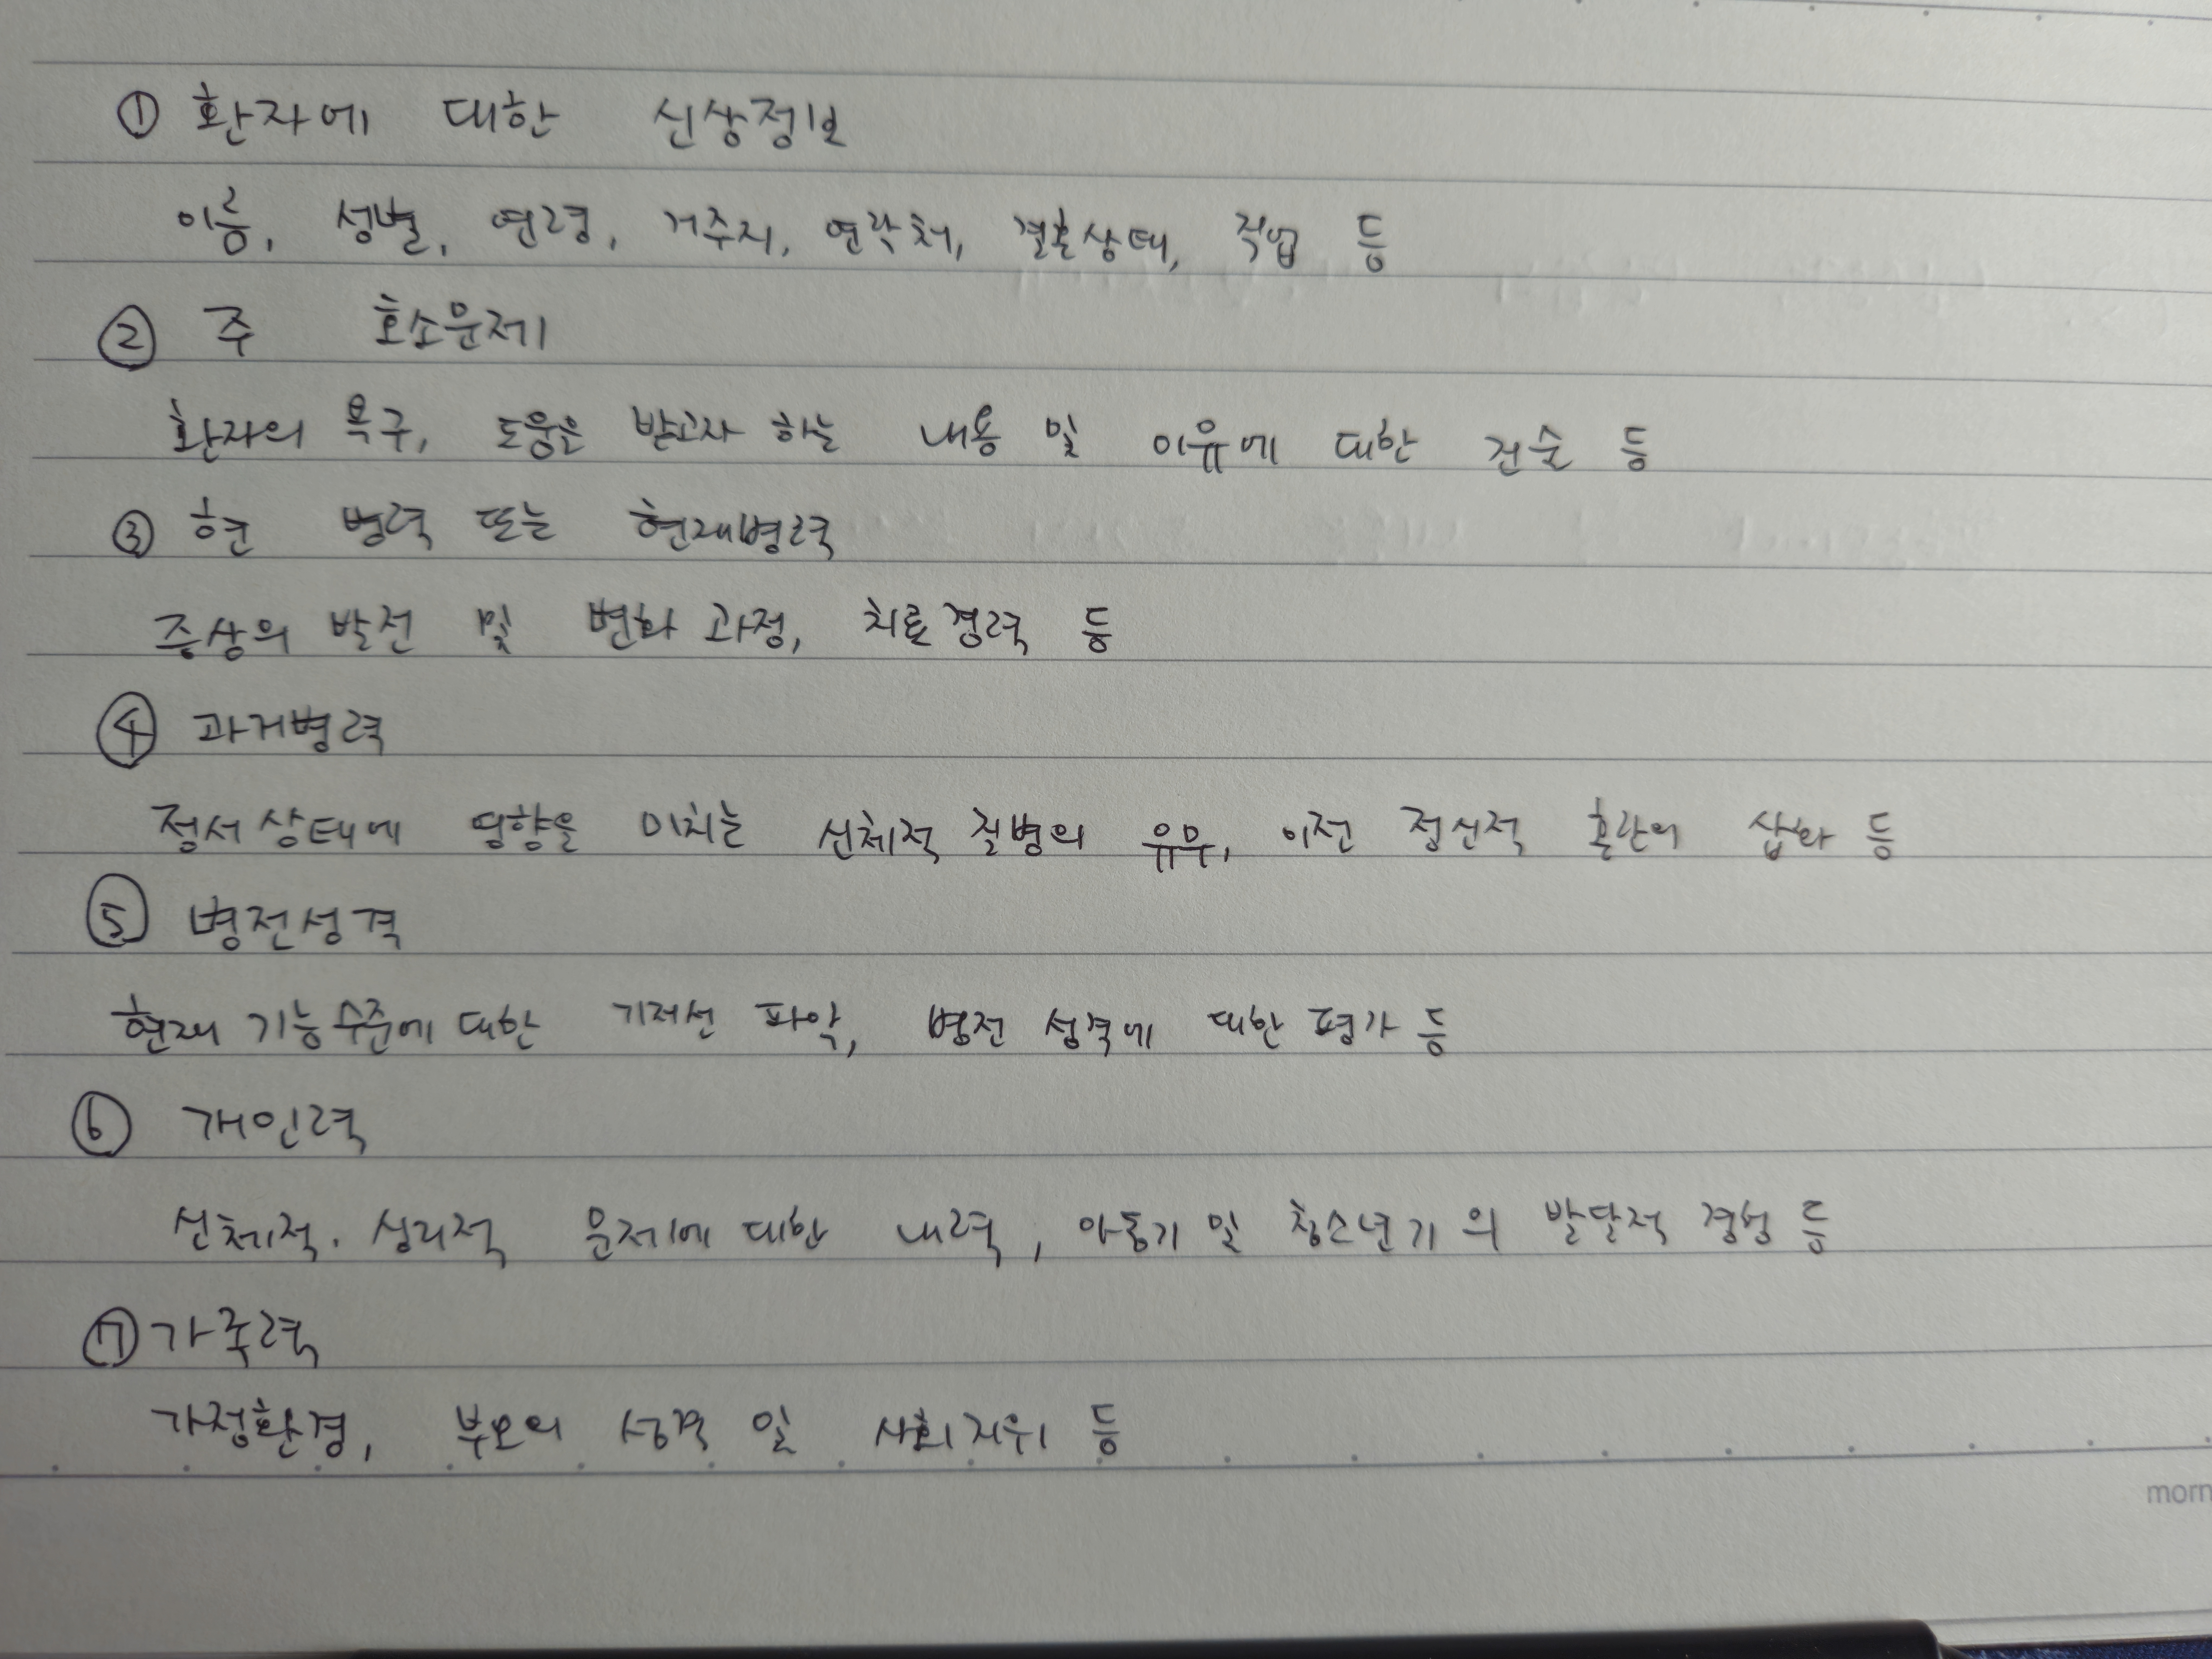 ① 환자에 대한 신상정보
이름, 성별, 연령, 거주지, 연락처, 결혼상태, 직업 등
② 주 호소문제
환자의 욕구, 도움을 받고자 하는 내용 및 이유에 대한 진술 등
③ 현 병력 또는 현재병력
증상의 발전 및 변화 과정, 치료경력 등
④ 과거병력
정서상태에 영향을 미치는 신체적 질병의 유무, 이전 정신적 혼란의 삽화 등
⑤ 병전성격
현재 기능수준에 대한 기저선 파악, 병전 성격에 대한 평가 등
⑥ 개인력
신체적·심리적 문제에 대한 내력, 아동기 및 청소년기의 발달적 경험 등
⑦ 가족력
가정환경, 부모의 성격 및 사회지위 등